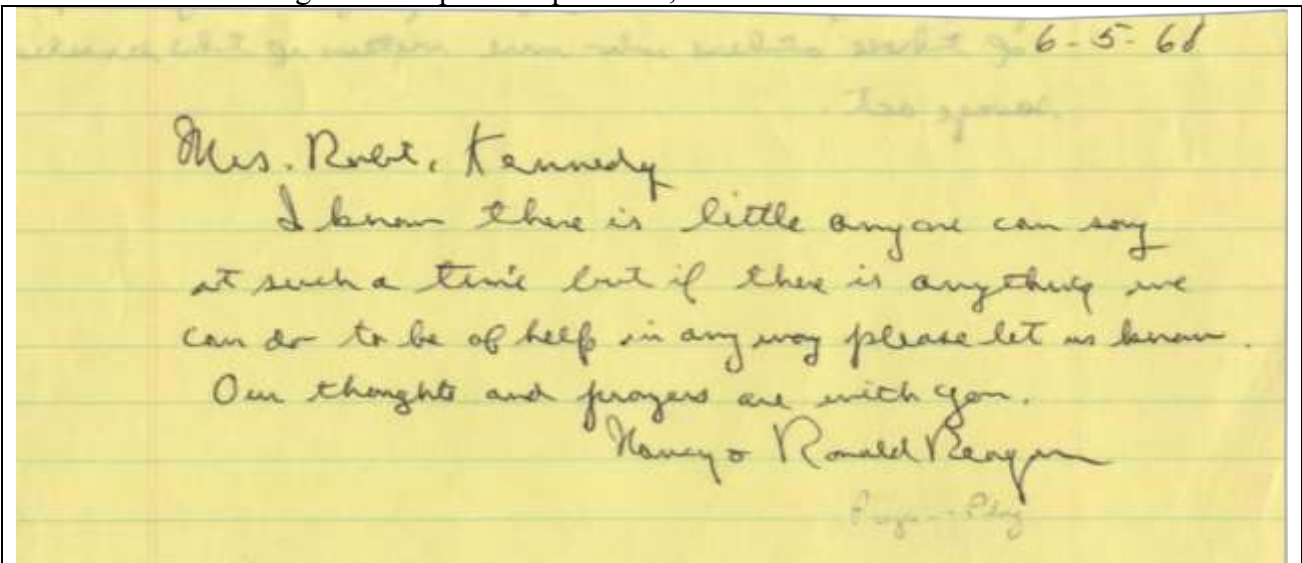 6-5-68
Mrs. Robt. Kennedy
I know there is little anyone can say
at such a time but if there is anything we
can do to be of help in any way please let us know.
Our thoughts and prayers are with you.
Nancy & Ronald Reagan